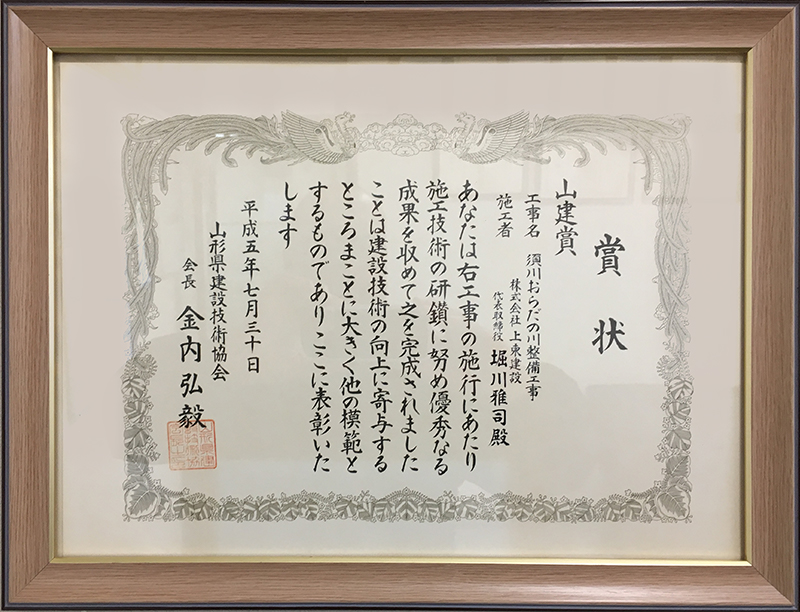 賞状
山建賞
工事名 須川おらだの川整備工事
施工者 株式会社 上東建設
代表取締役 堀川雅司殿
あなたは右工事の施行にあたり
施工技術の研鑚に努め優秀なる
成果を収めて之を完成されました
ことは建設技術の向上に寄与する
ところまことに大きく他の模範と
するものでありここに表彰いた
します
平成五年七月三十日
山形県建設技術協会
会長 金内弘毅